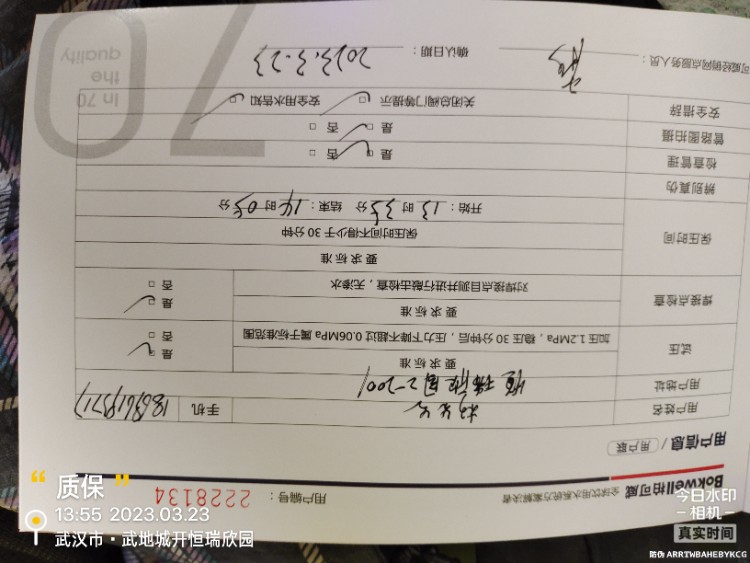 Bokwell柏可威 全球饮用水系统方案解决者
用户编号： 2228134
用户信息 / 用户联
用户姓名 手机
用户地址 恒瑞欣园2-2001
试压 要求标准
加压1.2MPa，稳压30分钟后，压力下降不超过0.06MPa属于标准范围
是 否
焊接点检查 要求标准
对焊接点目测并进行敲击检查，无渗水
是 否
保压时间 要求标准
保压时间不得少于30分钟
开始：13时35分 结束：14时05分
辨别真伪
检查管理 是 否
管路图拍摄 是 否
安全措辞 关闭总阀门等提示 安全用水告知
可威经销网点服务人员： 确认日期： 2023.3.23
In 70
the
quality
70
“质保”
13:55 2023.03.23
武汉市·武地城开恒瑞欣园
今日水印
-相机-
真实时间
防伪 ARRTWBAHEBYKCG